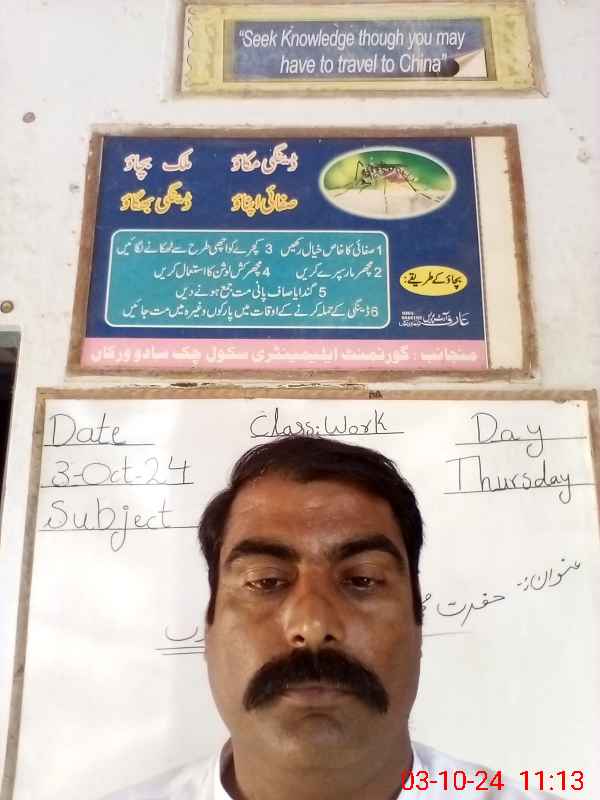 "Seek Knowledge though you may
have to travel to China"
ڈینگی مکاؤ ملک بچاؤ
صفائی اپناؤ ڈینگی بھگاؤ
بچاؤ کے طریقے:
1 صفائی کا خاص خیال رکھیں 3 کچرے کو اچھی طرح سے ٹھکانے لگائیں
2 مچھر مار سپرے کریں 4 مچھر کش لوشن کا استعمال کریں
5 گندا یا صاف پانی مت جمع ہونے دیں
6 ڈینگی کے حملہ کرنے کے اوقات میں پارکوں وغیرہ میں مت جائیں
عارف
منجانب: گورنمنٹ ایلیمینٹری سکول چک سادو ورکاں
Date Class:Work Day
3-Oct-24 Thursday
Subject
عنوان:- حضرت
03-10-24 11:13